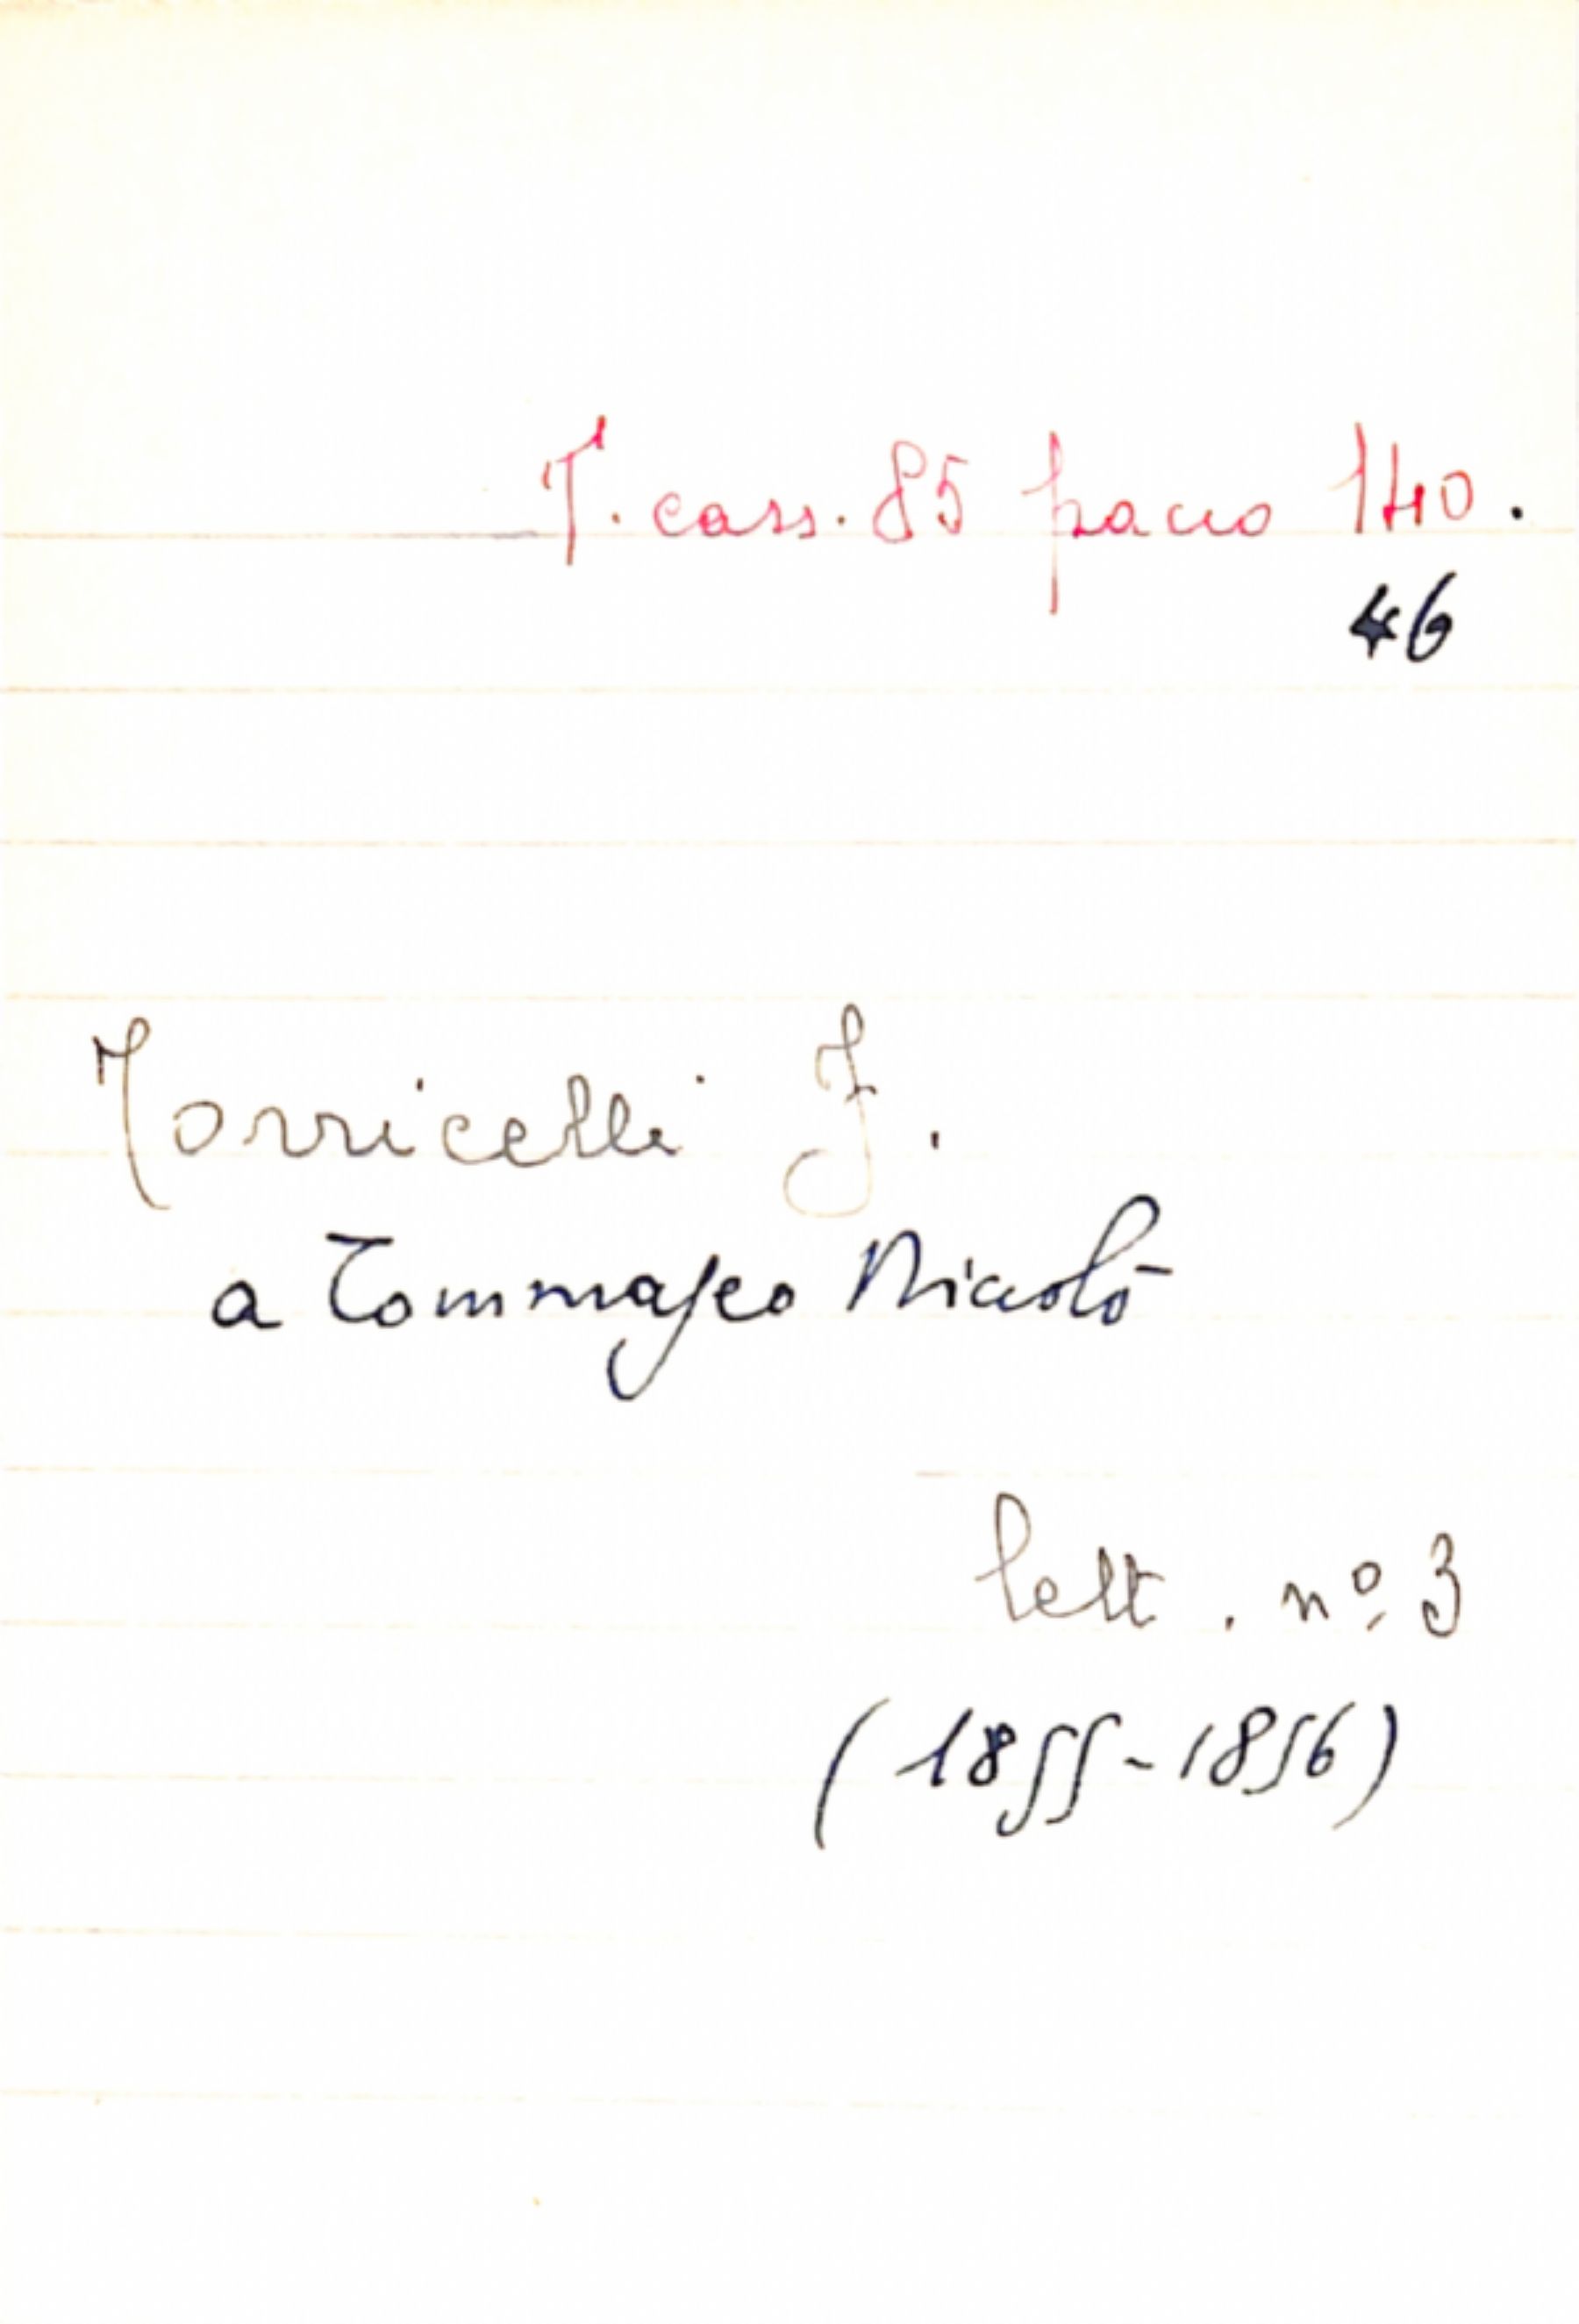 T. cass. 85 pacco 140.
46
Torricelli J.
a Tommaseo Niccolò
lett. nº 3
(1855-1856)